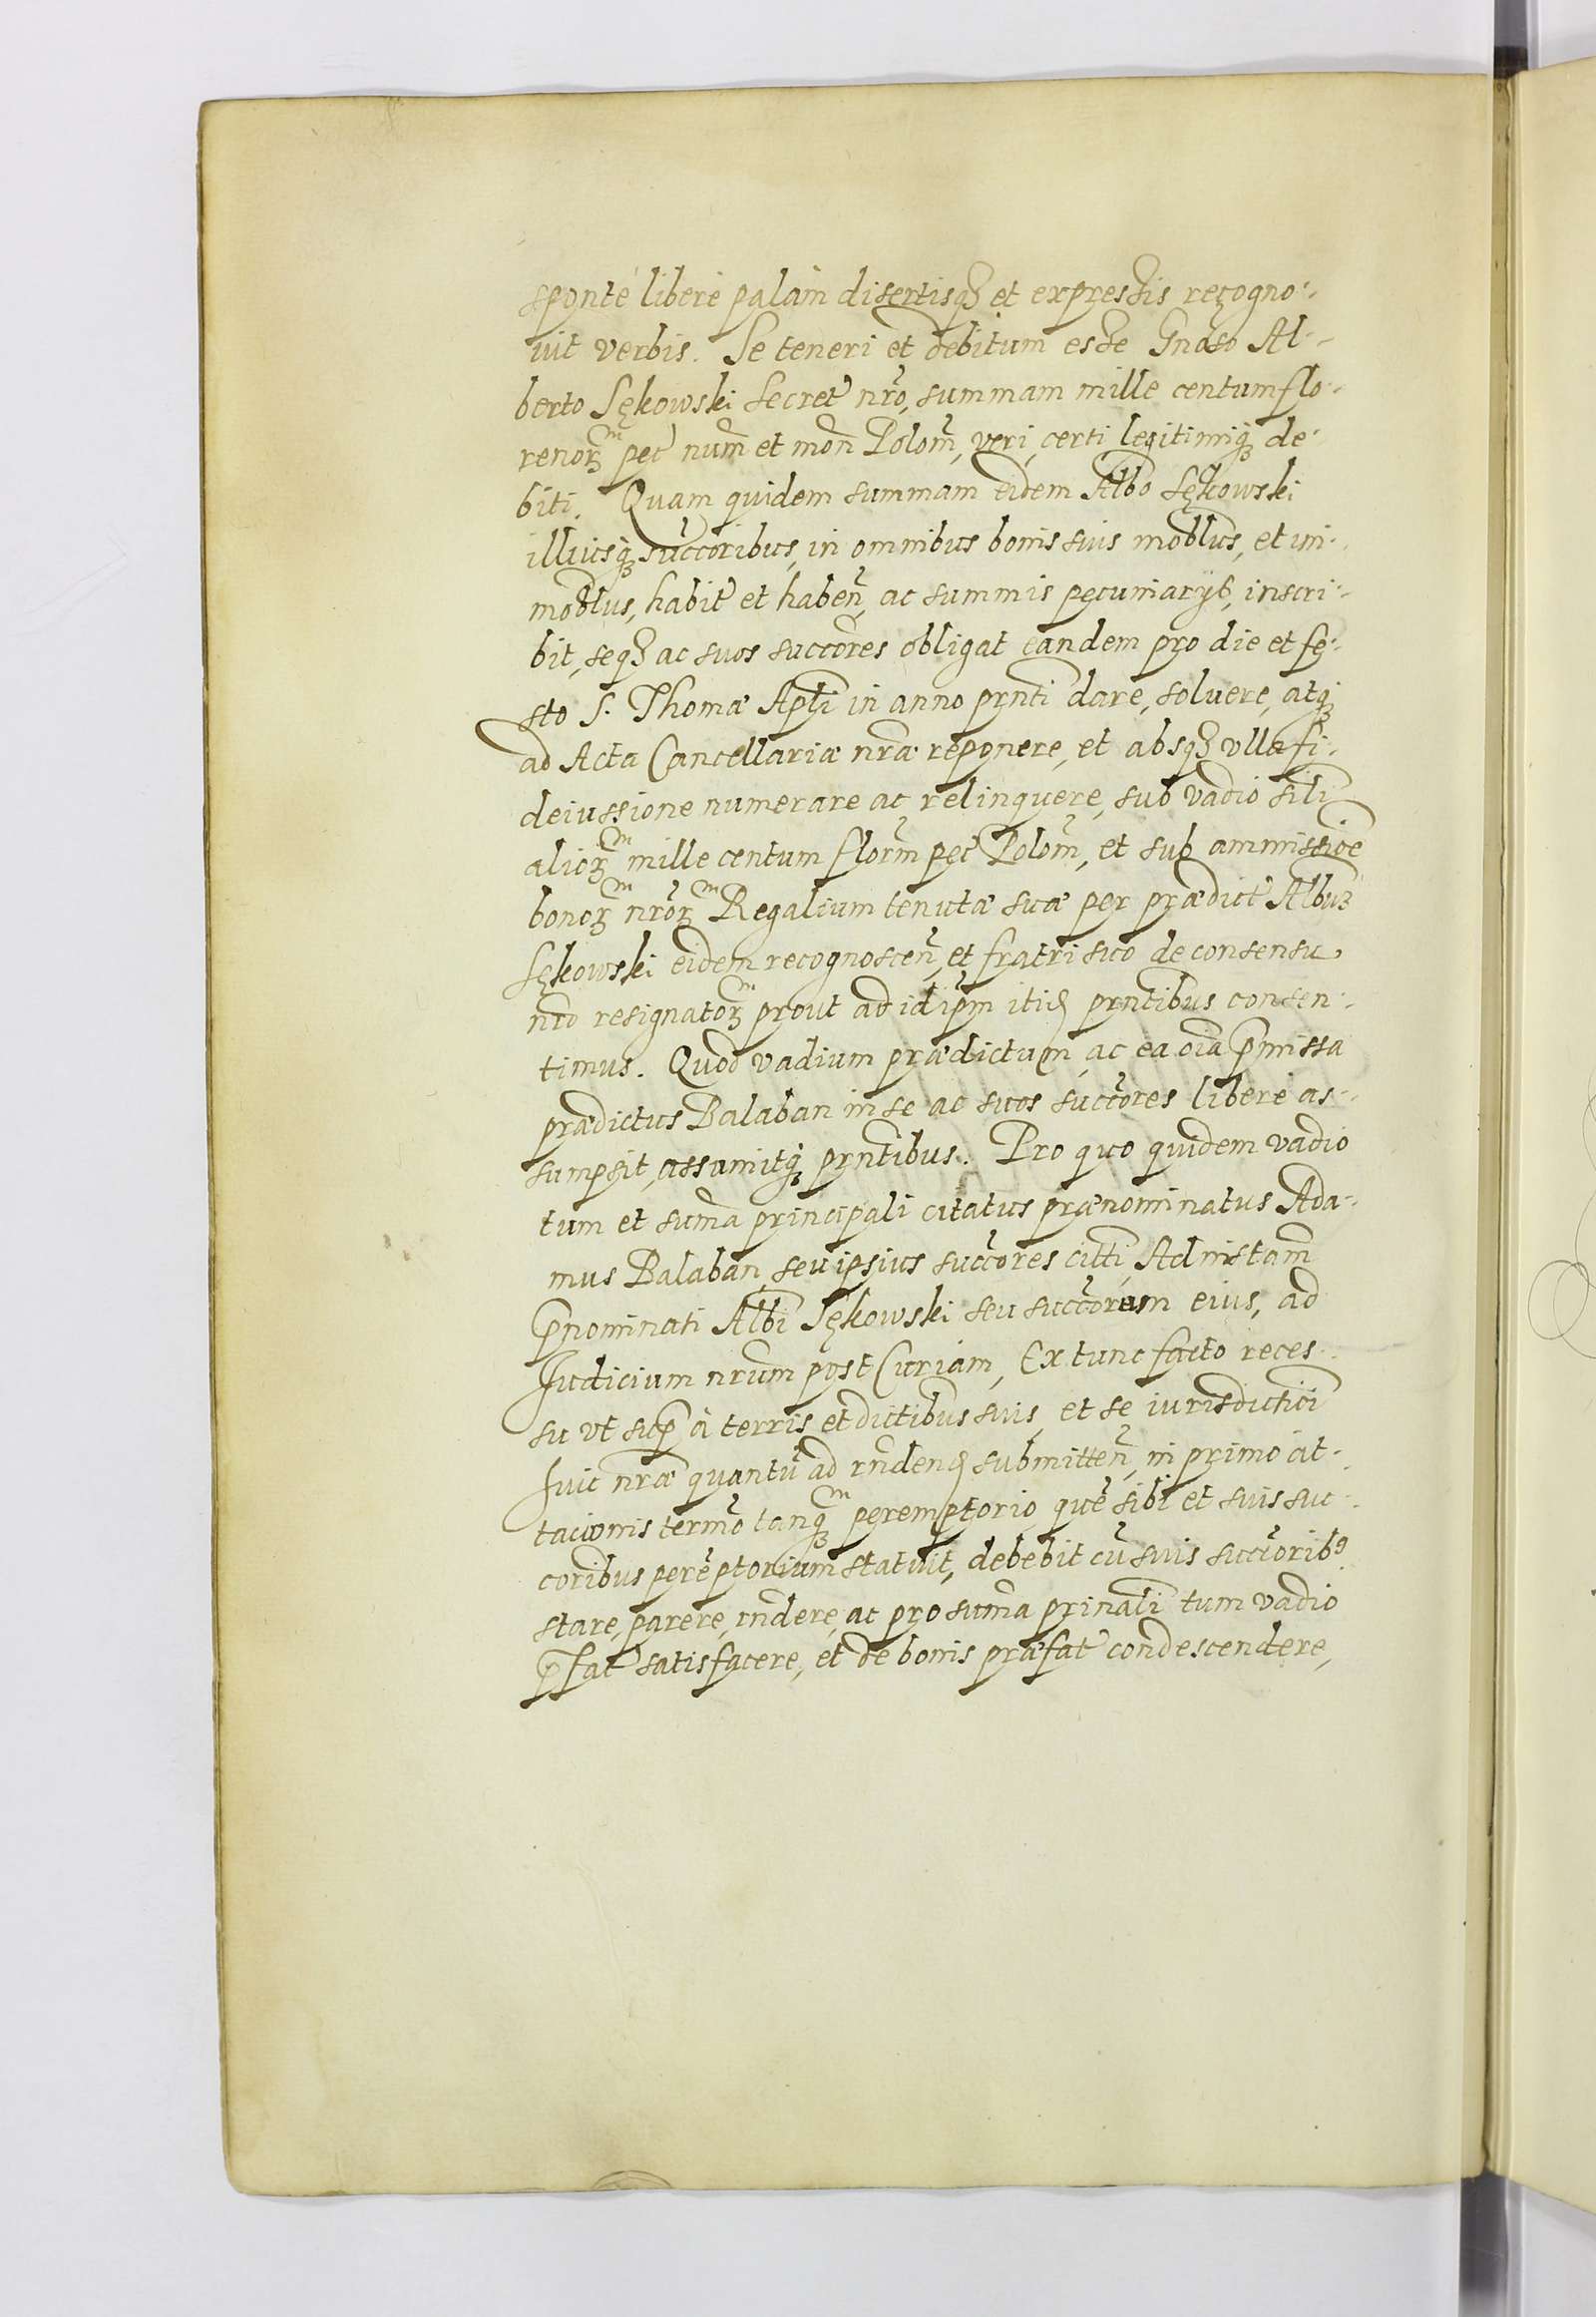 sponte libere palam disertisq₃ et expressis recogno-
uit verbis. Se teneri et debitum esse Gnoso Al-
berto Sękowski Secret nro, summam mille centum flo-
renorꝝ pec num et mon Polom, veri, certi legitimiq₃ de-
biti. Quam quidem summam eidem Albo Sękowski
illiusq₃ succoribus, in omnibus bonis suis moblus, et im-
moblus, habit et haben, ac summis pecuniarijs, inscri-
bit, seq₃ ac suos succores obligat eandem pro die et fe-
sto S. Thomæ Apli in anno prnti dare, soluere, atq₃
ad Acta Cancellariæ nræ reponere, et absq₃ vlla fi-
deiussione numerare ac relinquere, sub vadio sili
aliorꝝ mille centum florm pec Polom, et sub ammissioe
bonorꝝ nrorꝝ Regalium tenutæ suæ per prædict Albu
Sękowski eidem recognoscen, et fratri suo de consensu
nro resignatorꝝ prout ad id ipm itid prntibus consen-
timus. Quod vadium prædictum, ac ea oia pmissa
prædictus Balaban in se ac suos succores libere as-
sumpsit, assumitq₃ prntibus. Pro quo quidem vadio
tum et suma principali citatus prænominatus Ada-
mus Balaban, seu ipsius succores citti, Ad instam
pnominati Albi Sękowski seu succorum eius, ad
Judicium nrum post Curiam, Ex tunc facto reces-
su vt sup à terris et dictibus suis, et se iurisdictioi
huic nræ quantu ad rnden submitten, in primo cit-
tacionis termo tanq₃ peremptorio, que sibi et suis suc-
coribus pereptorium statuit, debebit cu suis succorib⁹
stare, parere, rndere, ac pro suma prinali tum vadio
pfat satisfacere, et de bonis præfat condescendere,